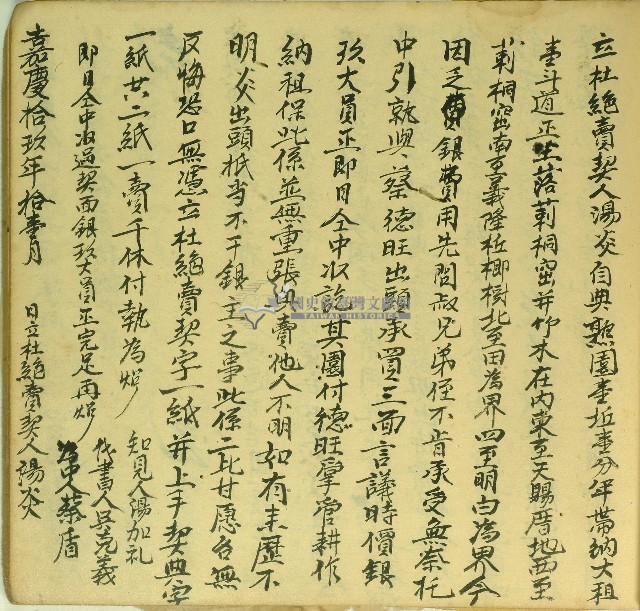 立杜絕賣契人湯炎自典熟園壹坵壹分年帶納大租
壹斗道正坐落莿桐窑并竹木在內東至天賜厝地西至
莿桐窑南至義隆坵榔樹北至田為界四至明白為界今
因乏銀費用先問叔兄弟侄不肯承受無奈托
中引就與蔡德旺出頭承買三面言議時價銀
玖大員正即日仝中收訖其園付德旺掌管耕作
納租保此係並無重張典賣他人不明如有來歷不
明炎出頭抵当不干銀主之事此係二比甘愿各無
反悔恐口無憑立杜絕賣契字一紙并上手契典字
一紙共二紙一賣千休付執為炤
即日仝中收過契面銀玖大員正完足再炤
知見人湯加礼
代書人吳克義
為中人蔡盾
嘉慶拾玖年拾壹月 日立杜絕賣契人湯炎
國史館臺灣文獻館
TAIWAN HISTORICA